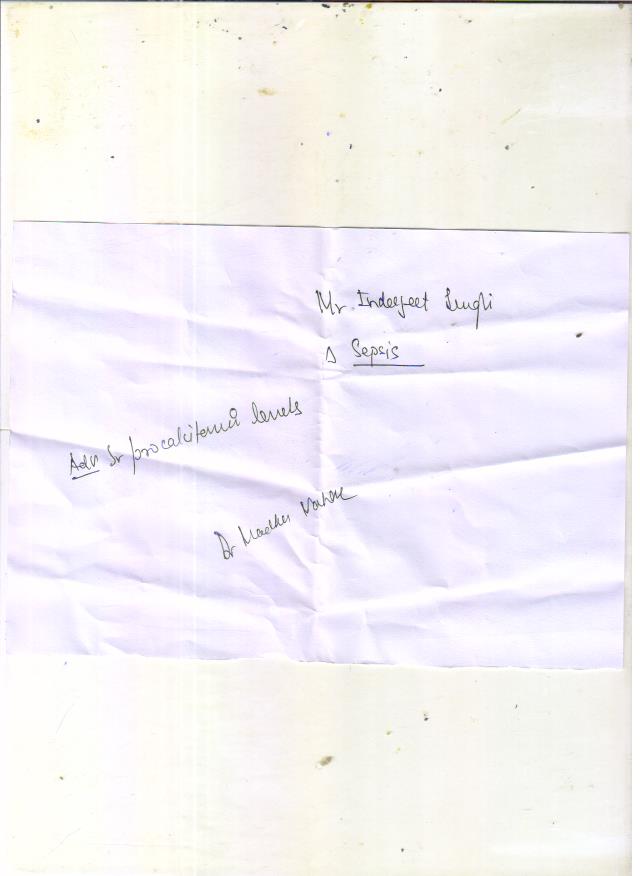 Mr. Inderjeet Singh
Δ Sepsis
Adv Sr procalcitonin levels
Dr Madhu